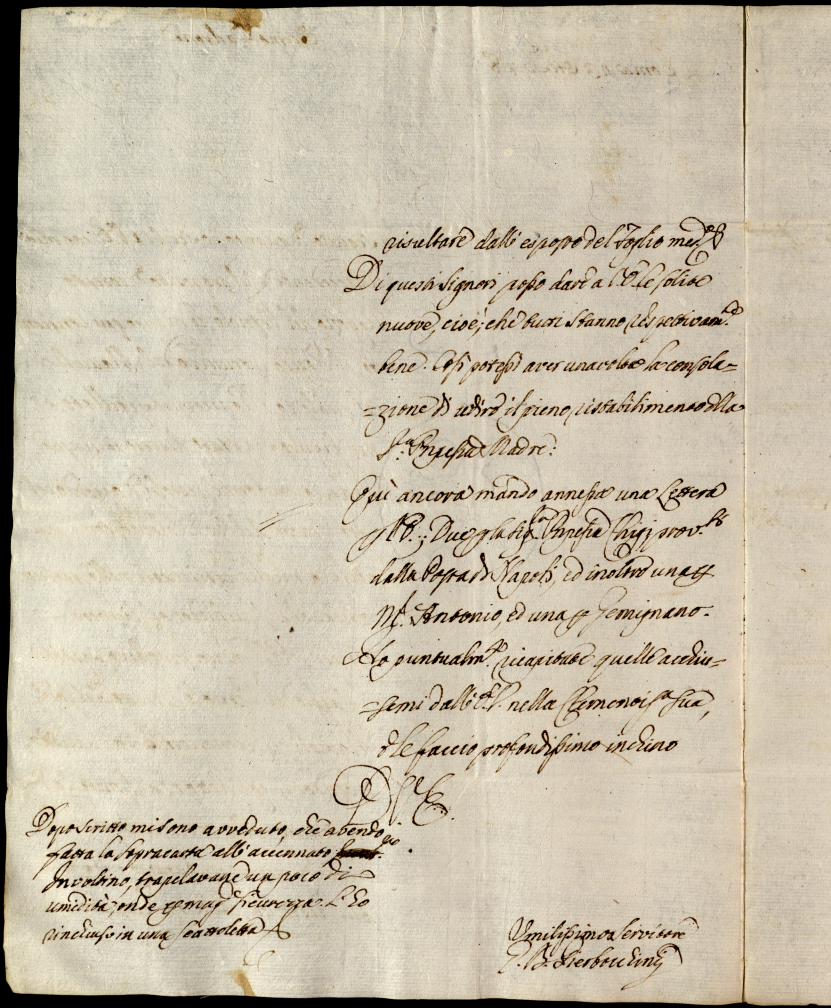 risultare dall'esposto del foglio med.º
Di questi Signori posso dare a V.E. le solite
nuove, cioè, che tutti stanno respettivam.te
bene. Così potessi aver una volta la consola=
=zione di udire il pieno ristabilimento della
S.ra Pnpessa Madre:
Quì ancora mando annessa una Lettera
p V.E.; Due p la Sig.ra Pnpessa Chigi prov.te
dalla Posta di Napoli, ed inoltre una p
M.r Antonio, ed una p Gemignano.
Ho puntualm.te ricapitate quelle acchiu=
=semi dall'E.V. nella Clementis.ma sua,
e le faccio profondissimo inchino
D. V. E.
Dopo scritto mi sono avveduto, che avendo
fatta la sopracarta all'accennato
Involtino, trapelavane un poco di
umidità, onde p mag.r sicurezza l'ho
rinchiuso in una scattoletta
Umilissimo Servitore